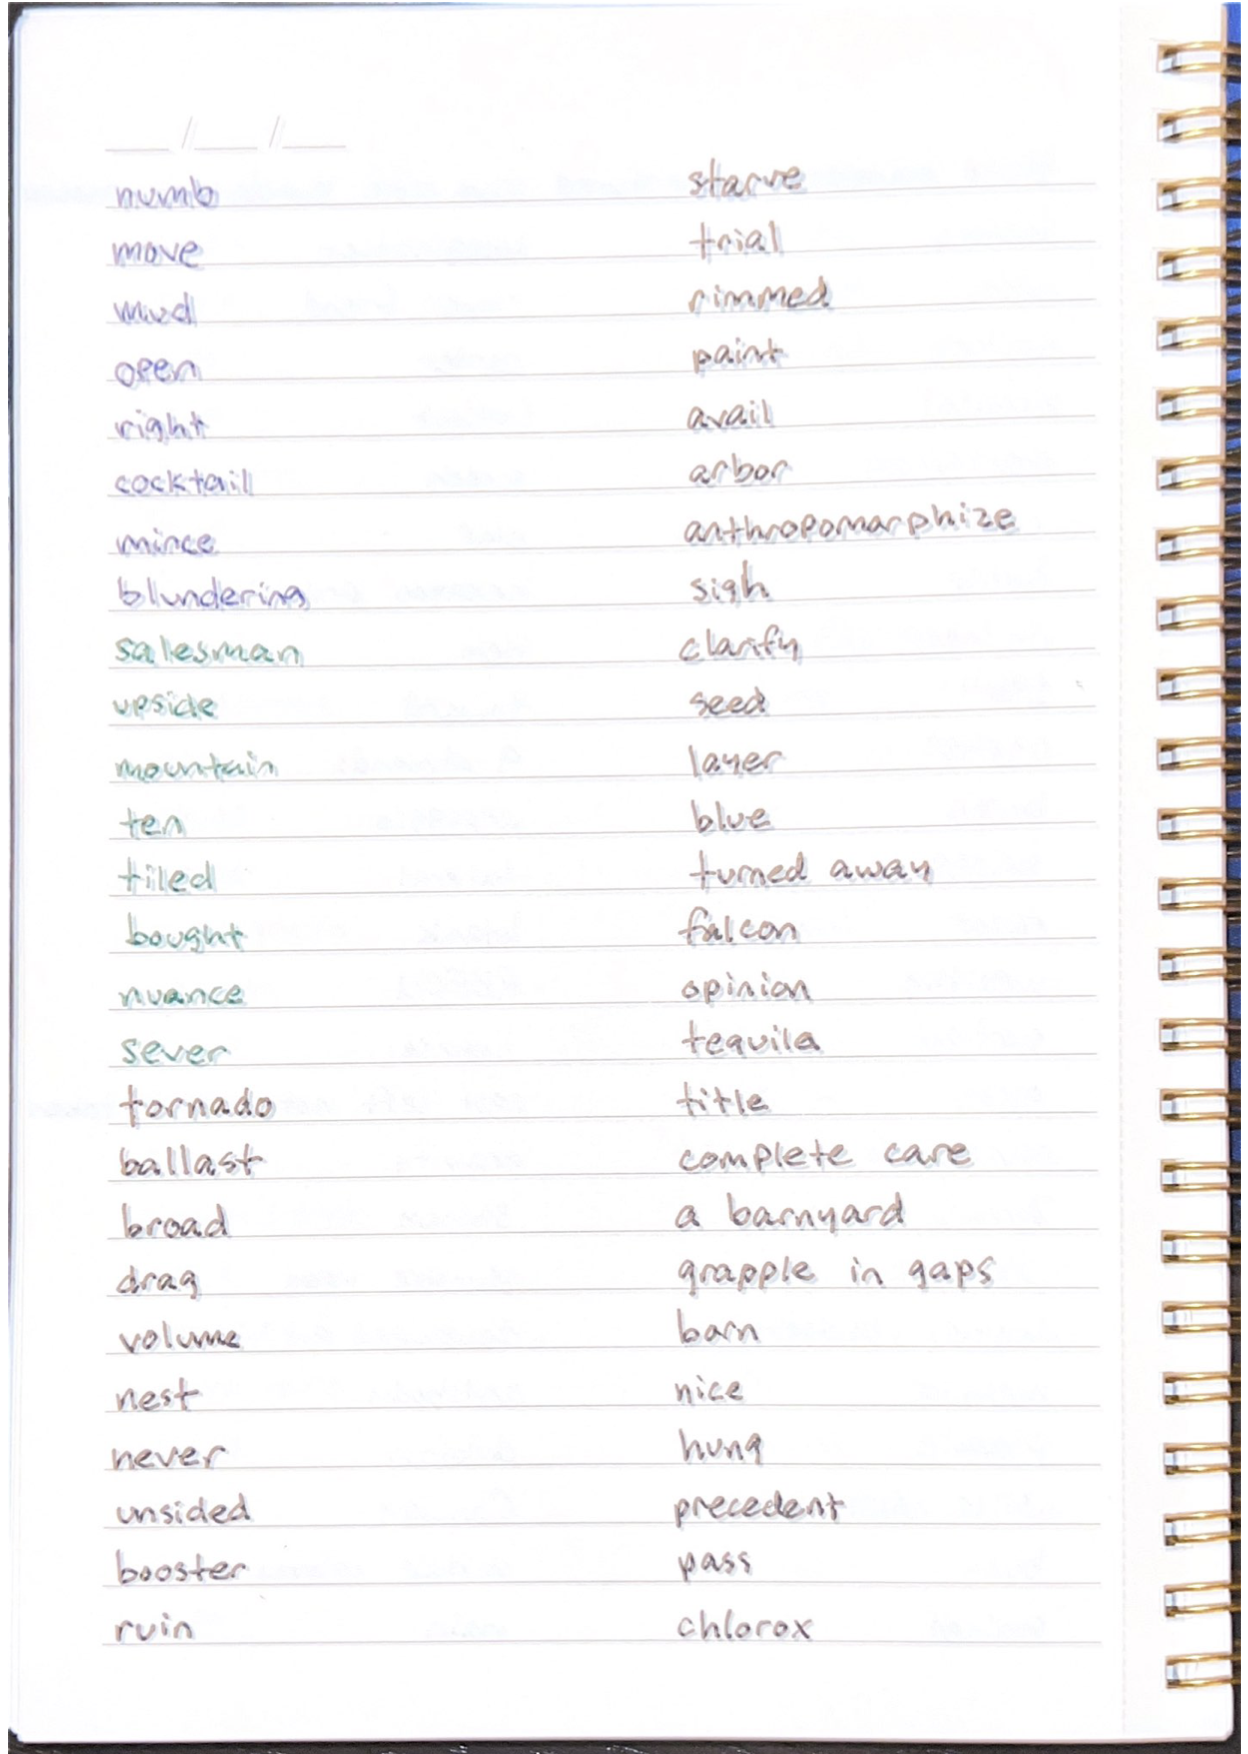 numb
move
mud
open
right
cocktail
mince
blundering
salesman
upside
mountain
ten
tiled
bought
nuance
sever
tornado
ballast
broad
drag
volume
nest
never
unsided
booster
ruin
starve
trial
rimmed
paint
avail
arbor
anthropomorphize
sigh
clarify
seed
layer
blue
turned away
falcon
opinion
tequila
title
complete care
a barnyard
grapple in gaps
barn
nice
hung
precedent
pass
chlorox